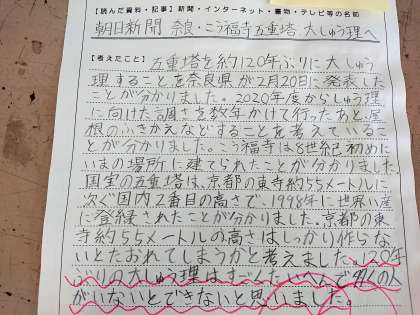 【読んだ資料・記事】新聞・インターネット・書物・テレビ等の名前
朝日新聞 奈良・こう福寺五重塔 大しゅう理へ
【考えたこと】 五重塔を約120年ぶりに大しゅう
理することを奈良県が2月20日に発表した
ことが分かりました。2020年度からしゅう理
に向けた調さを数年かけて行ったあと、屋
根のふきかえなどすることを考えているこ
とが分かりました。こう福寺は8世紀初めに
いまの場所に建てられたことが分かりました。
国宝の五重塔は、京都の東寺約55メートルに
次ぐ国内2番目の高さで、1998年に世界い産
に登録されたことが分かりました。京都の東
寺約55メートルの高さはしっかり作らな
いとたおれてしまうかと考えました。120年
ぶりの大しゅう理はすごくたいへんで の人
がいないとできないと思いました。